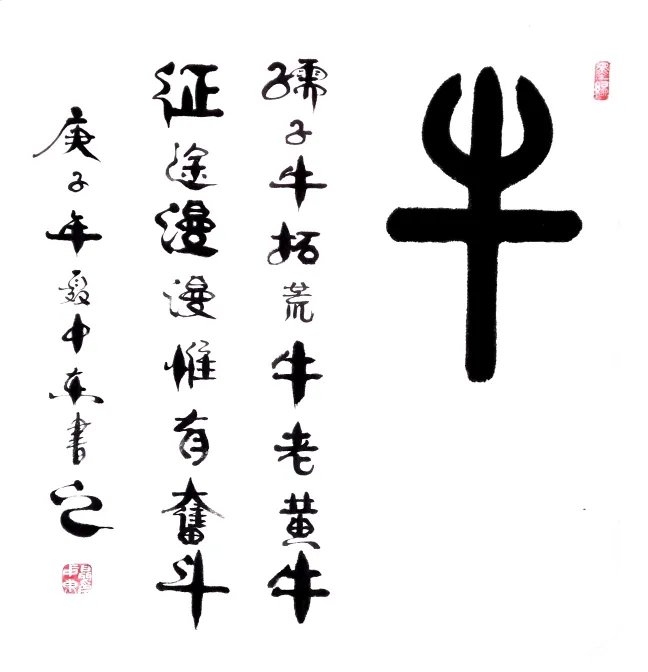 牛
孺子牛拓荒牛老黄牛
征途漫漫惟有奮斗
庚子年聂中东書之